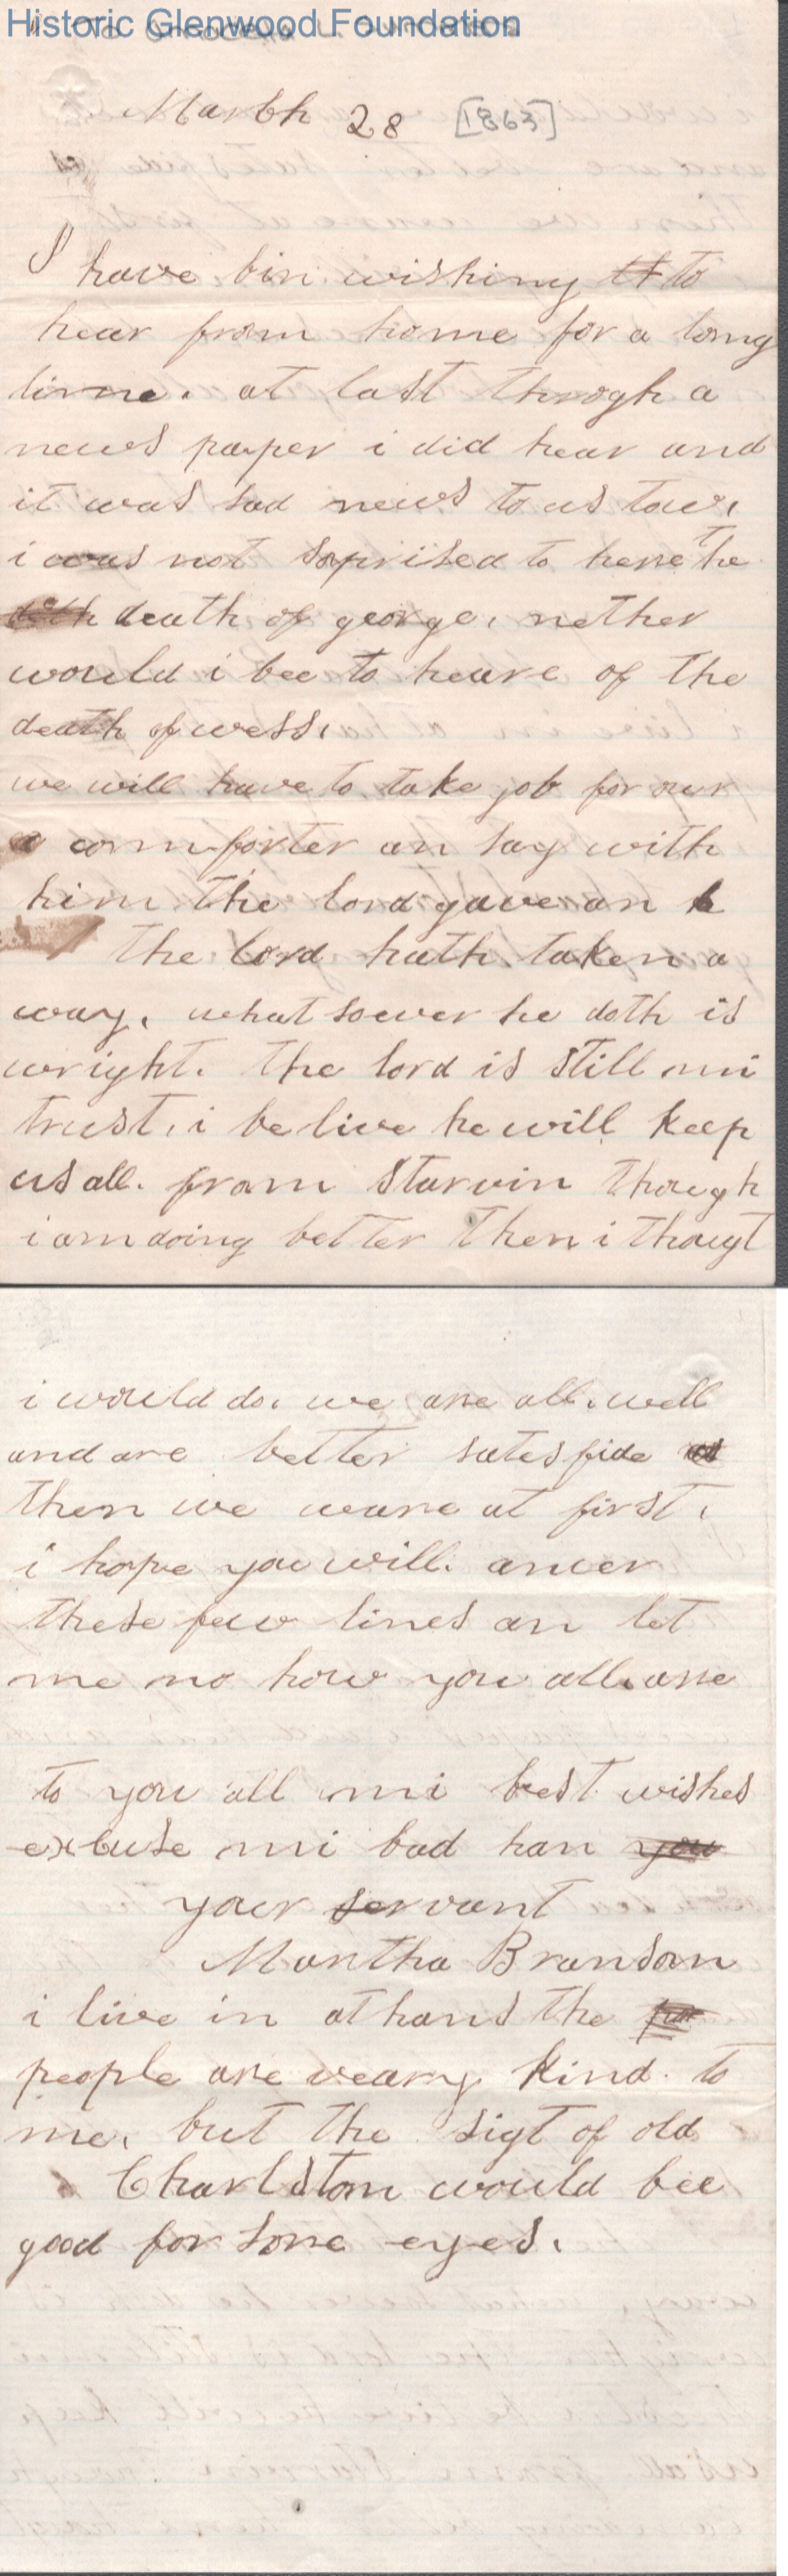 Historic Glenwood Foundation
March 28 [1863]
I have bin wishing to
hear from home for a long
time. at last throgh a
news paper i did hear and
it was sad news to us tow.
i was not soprised to here the
death of george. nether
would i bee to heare of the
death of wess.
we will have to take job for our
comforter an say with
him the lord gave an
the lord hath taken a
way. what soever he doth is
wright. the lord is still mi
trust. i be live he will keep
us all. from starvin though
i am doing better then i thougt
i would do. we are all. well
and are better satesfide
then we ware at first.
i hope you will. ancer
these few lines an let
me no how you all are
to you all mi best wishes
excuse mi bad han
your servant
Martha Brandon
i live in athans the
people are veary kind to
me. but the sigt of old
Charlston would bee
good for sore eyes.